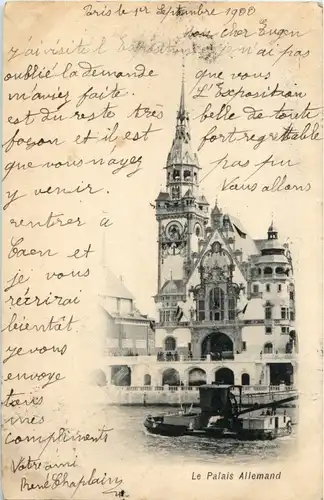 Paris le 1er Septembre 1900
Mon cher Eugen
j'ai visité l'Exposition je n'ai pas
oublié la demande que vous
m'aviez faite. L'Exposition
est du reste très belle de toute
façon et il est fort regrettable
que vous n'ayez pas pu
y venir. Nous allons
rentrer à
Caen et
je vous
récrirai
bientôt.
je vous
envoye
tous
mes
compliments
Votre ami
René Chaplain
Le Palais Allemand